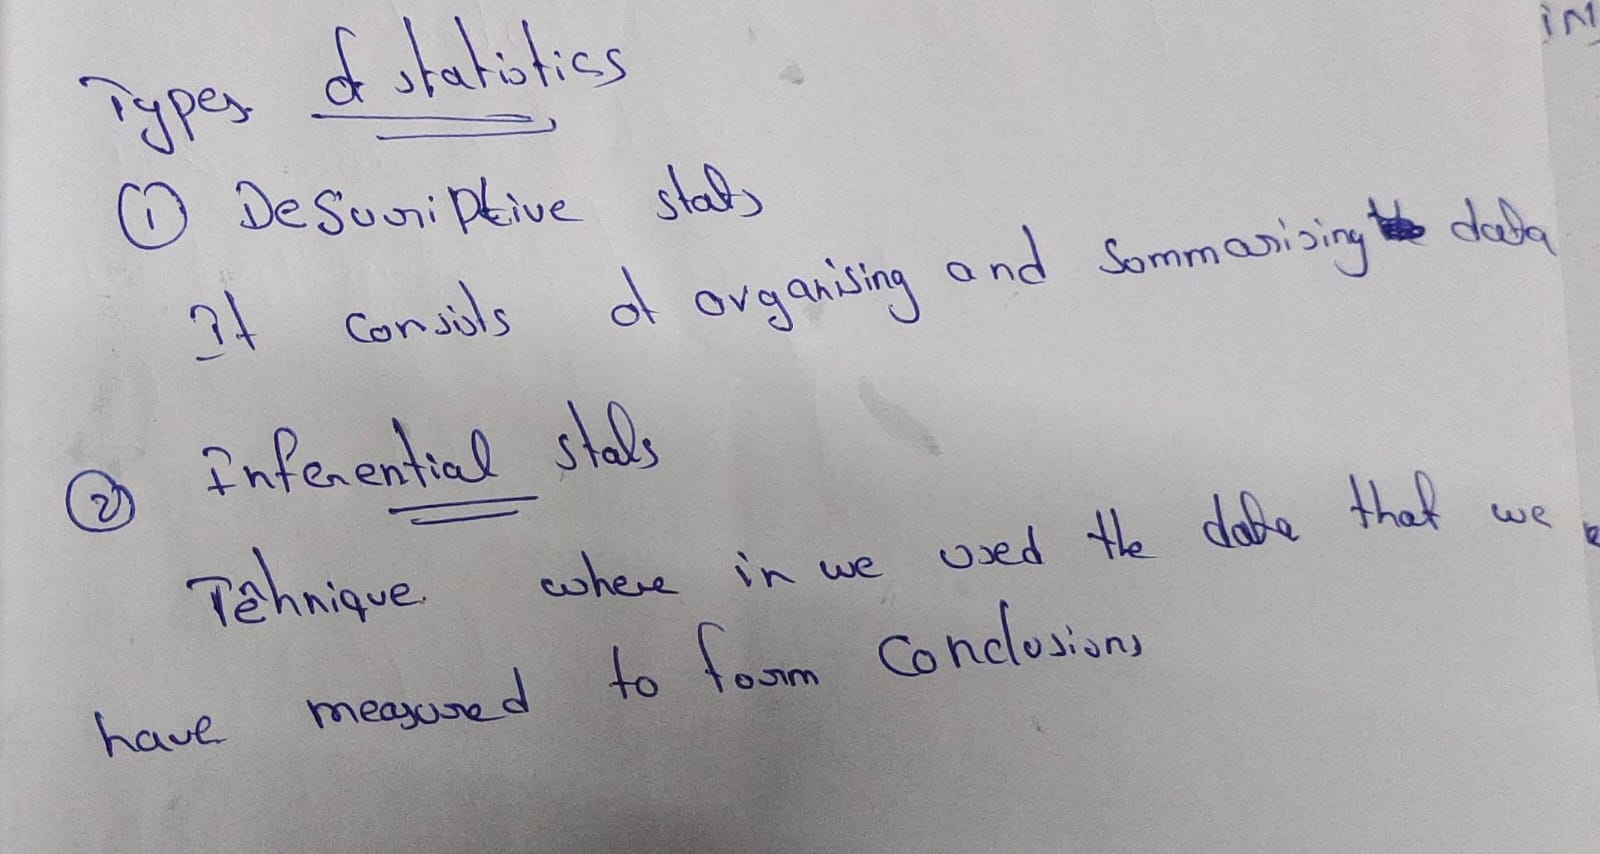 Types of statistics
① Descriptive stats
It consists of organising and Sommarising data
② Inferential stats
Tehnique where in we used the data that we
have measured to form Conclusions